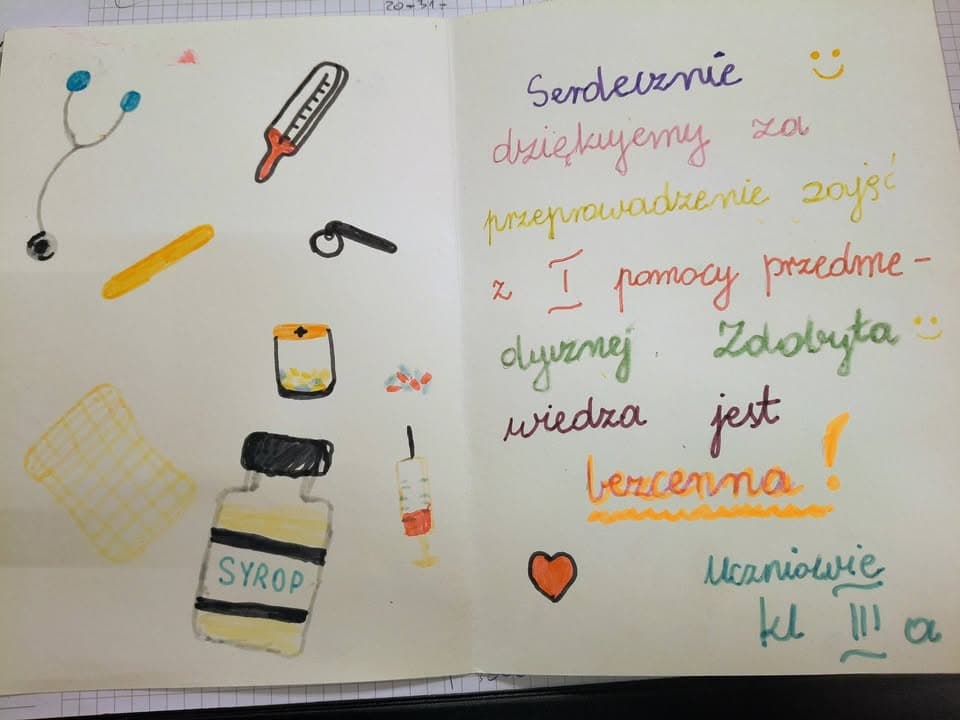 20-31-
SYROP
Serdecznie
dziękujemy za
przeprowadzenie zajęć
z I pomocy przedme-
dycznej. Zdobyta
wiedza jest
bezcenna!
Uczniowie
kl III a